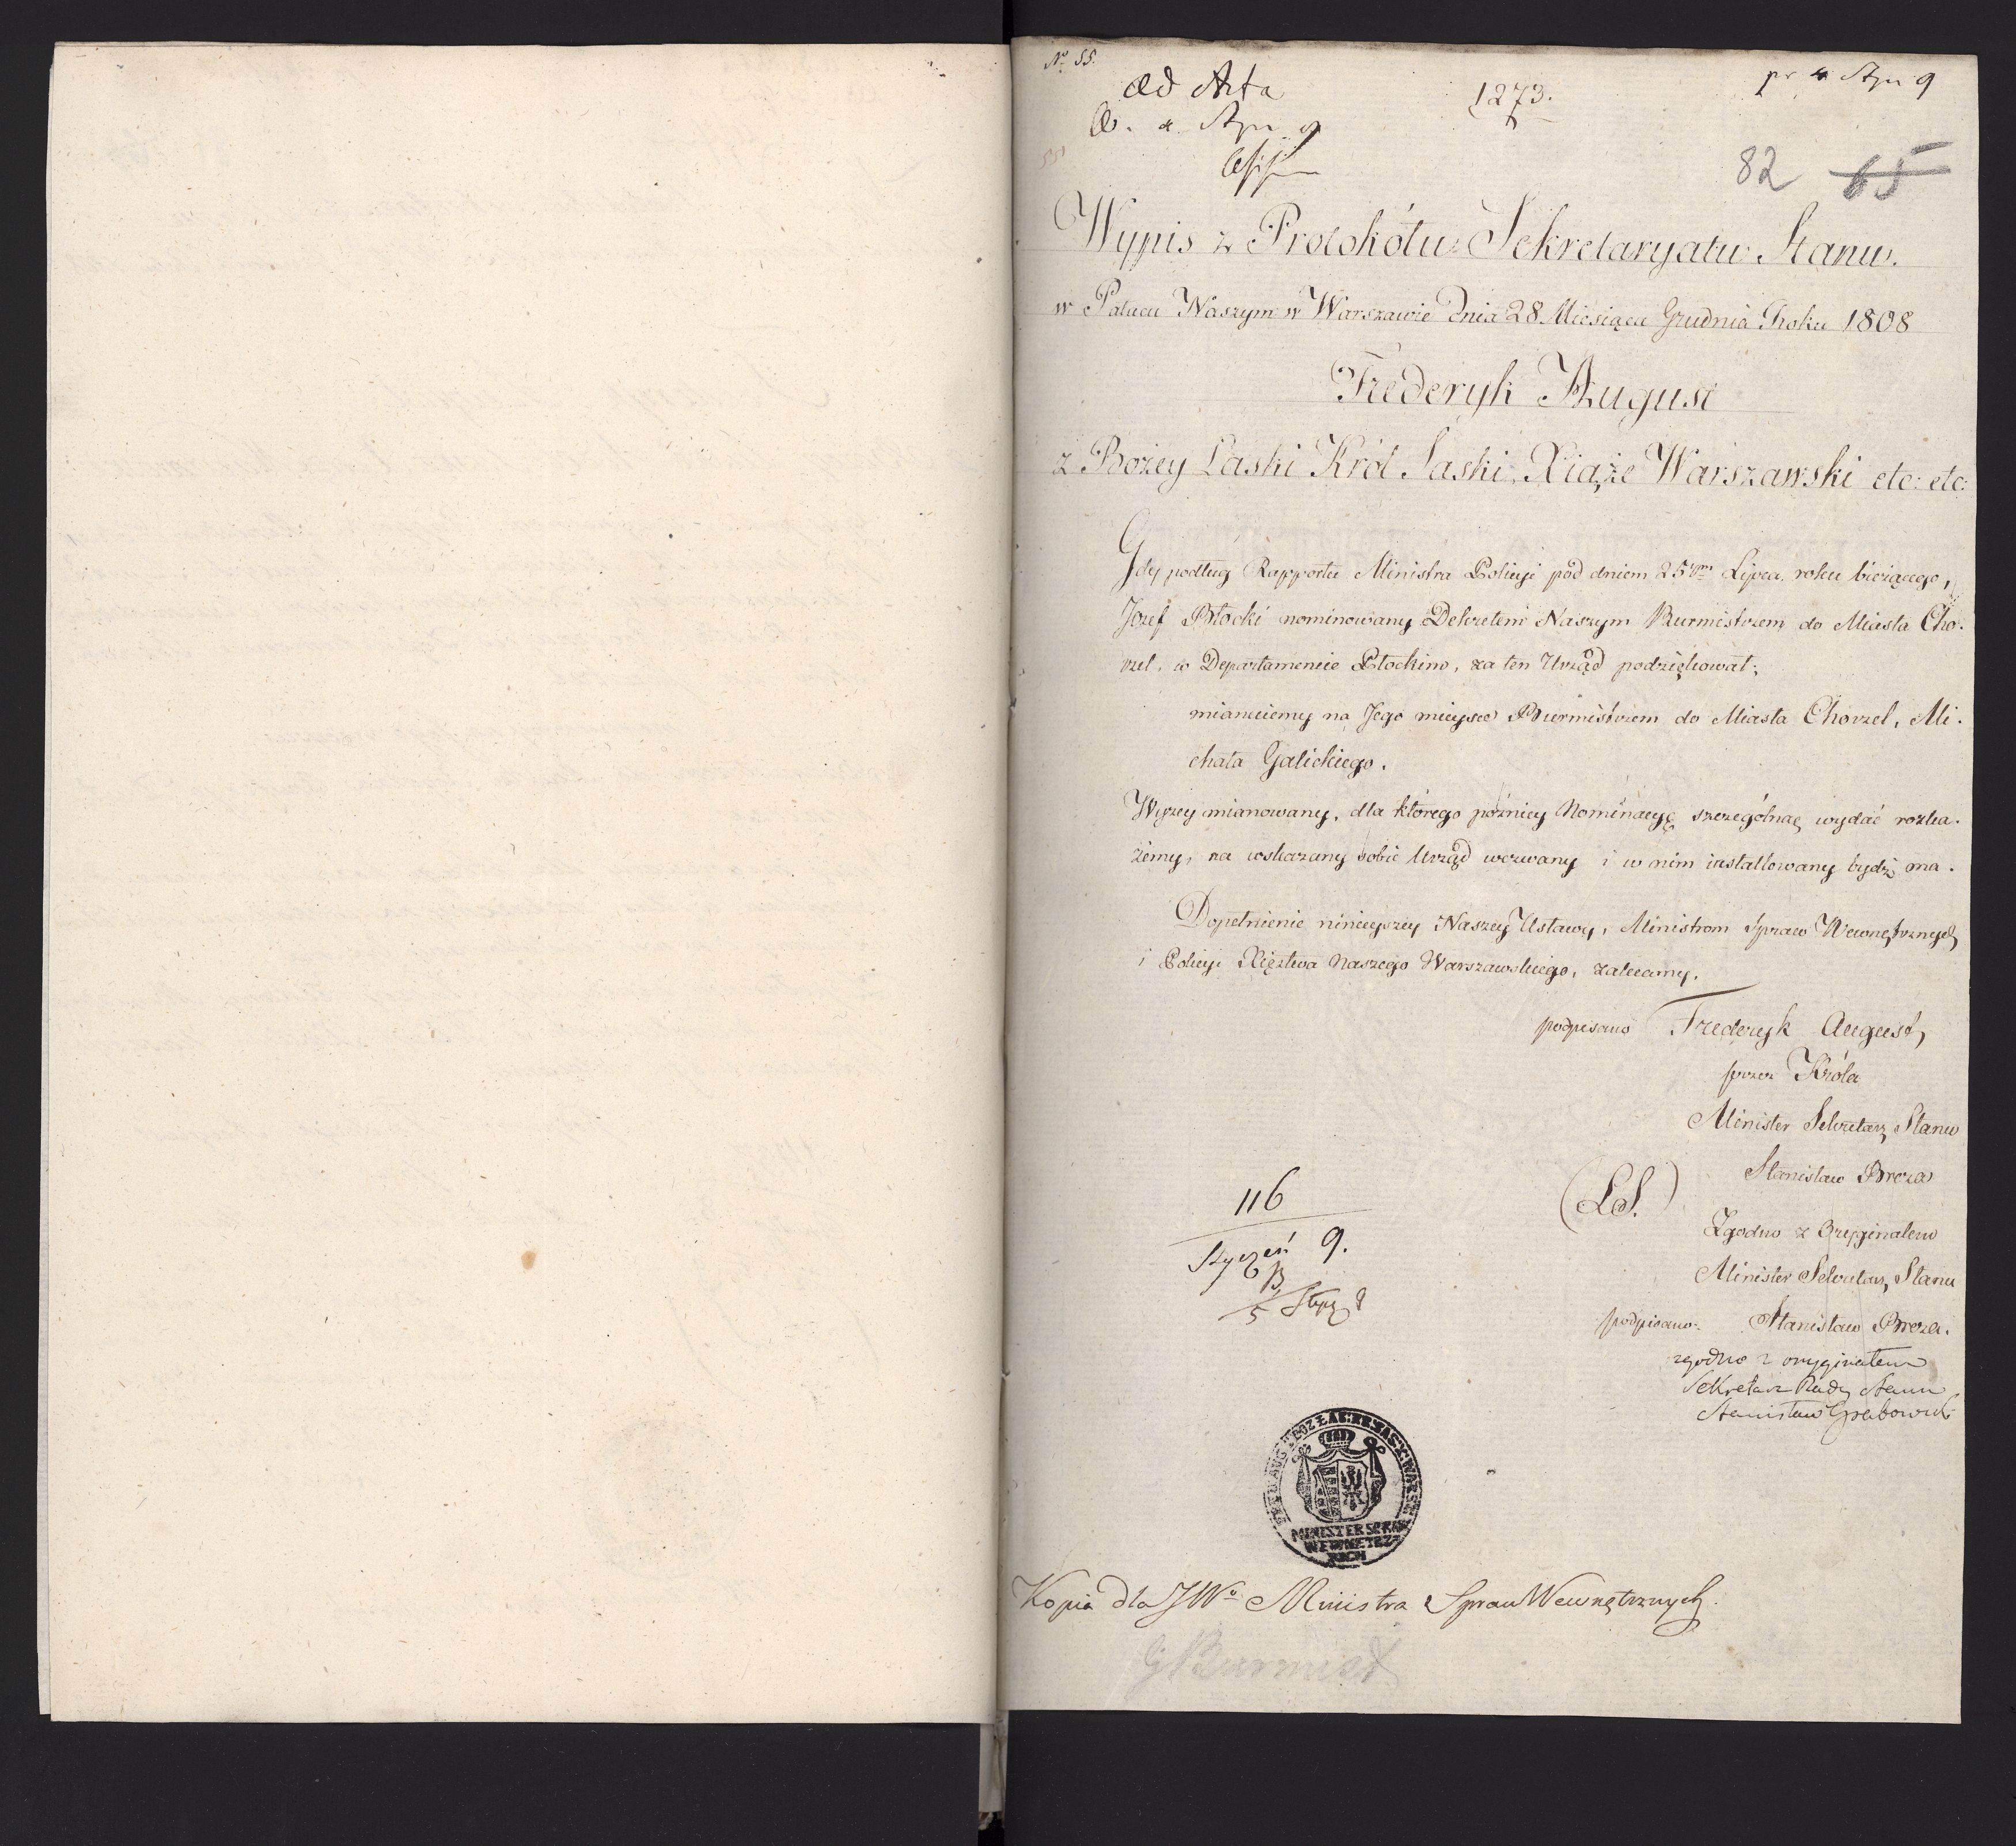 No 55.
Ad Acta
1273.
pr 4 Stycz 9
82 65
Wypis z Protokółu Sekretaryatu Stanu.
w Pałacu Naszym w Warszawie Dnia 28 Miesiąca Grudnia Roku 1808
Fryderyk August
z Bożey Łaski Król Saski, Xiąże Warszawski etc: etc:
Gdy podług Rapportu Ministra Policyi pod dniem 25tym Lipca roku bieżącego,
Jozef Błocki nominowany Dekretem Naszym Burmistrzem do Miasta Cho-
rzel, w Departamencie Płockim, za ten Urząd podziękował;
mianuiemy na Jego mieysce Burmistrzem do Miasta Chorzel, Mi-
chała Galickiego.
Wyżey mianowany, dla którego późniey Nominacyę szczególną wydać rozka-
żemy, na wskazany sobie Urząd wezwany i w nim installowany bydź ma.
Dopełnienie ninieyszey Naszey Ustawy, Ministrom Spraw Wewnętrznych
i Policyi Xięztwa Naszego Warszawskiego, zalecamy.
podpisano Fryderyk August,
przez Króla
Minister Sekretarz Stanu
Stanisław Breza
(L.S.)
Zgodno z Oryginałem
Minister Sekretarz Stanu
podpisano: Stanisław Breza.
zgodno z oryginałem
Sekretarz Rady Stanu
Stanisław Grabowski
116
Styczeń 9.
MINISTER SPRAW
WEWNĘTRZ-
NYCH
Kopia dla JWo Ministra Spraw Wewnętrznych.
Burmist